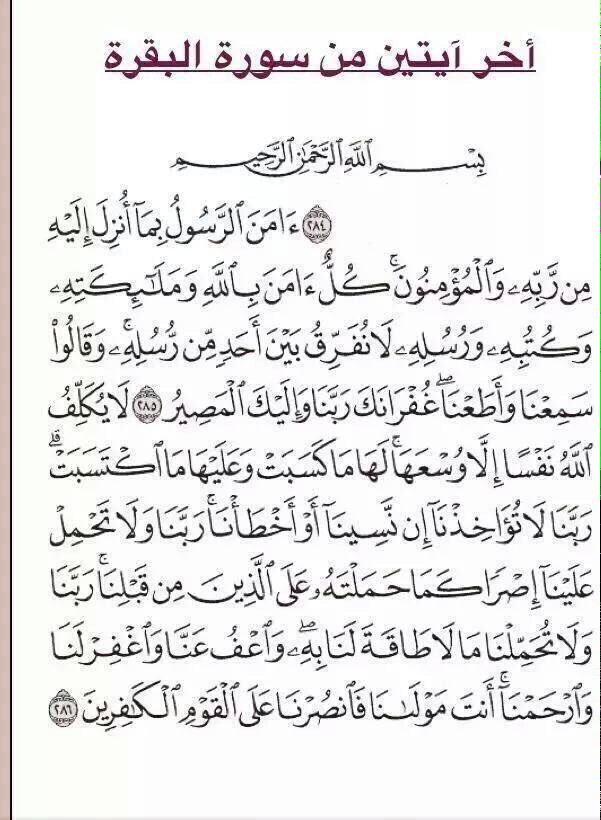 أخر آيتين من سورة البقرة
بِسْمِ ٱللَّهِ ٱلرَّحْمَٰنِ ٱلرَّحِيمِ
٢٨٤ ءَامَنَ ٱلرَّسُولُ بِمَآ أُنزِلَ إِلَيْهِ
مِن رَّبِّهِۦ وَٱلْمُؤْمِنُونَ ۚ كُلٌّ ءَامَنَ بِٱللَّهِ وَمَلَٰٓئِكَتِهِۦ
وَكُتُبِهِۦ وَرُسُلِهِۦ لَا نُفَرِّقُ بَيْنَ أَحَدٍ مِّن رُّسُلِهِۦ ۚ وَقَالُوا۟
سَمِعْنَا وَأَطَعْنَا ۖ غُفْرَانَكَ رَبَّنَا وَإِلَيْكَ ٱلْمَصِيرُ ٢٨٥ لَا يُكَلِّفُ
ٱللَّهُ نَفْسًا إِلَّا وُسْعَهَا ۚ لَهَا مَا كَسَبَتْ وَعَلَيْهَا مَا ٱكْتَسَبَتْ ۗ
رَبَّنَا لَا تُؤَاخِذْنَآ إِن نَّسِينَآ أَوْ أَخْطَأْنَا ۚ رَبَّنَا وَلَا تَحْمِلْ
عَلَيْنَآ إِصْرًا كَمَا حَمَلْتَهُۥ عَلَى ٱلَّذِينَ مِن قَبْلِنَا ۚ رَبَّنَا
وَلَا تُحَمِّلْنَا مَا لَا طَاقَةَ لَنَا بِهِۦ ۖ وَٱعْفُ عَنَّا وَٱغْفِرْ لَنَا
وَٱرْحَمْنَآ ۚ أَنتَ مَوْلَىٰنَا فَٱنصُرْنَا عَلَى ٱلْقَوْمِ ٱلْكَٰفِرِينَ ٢٨٦